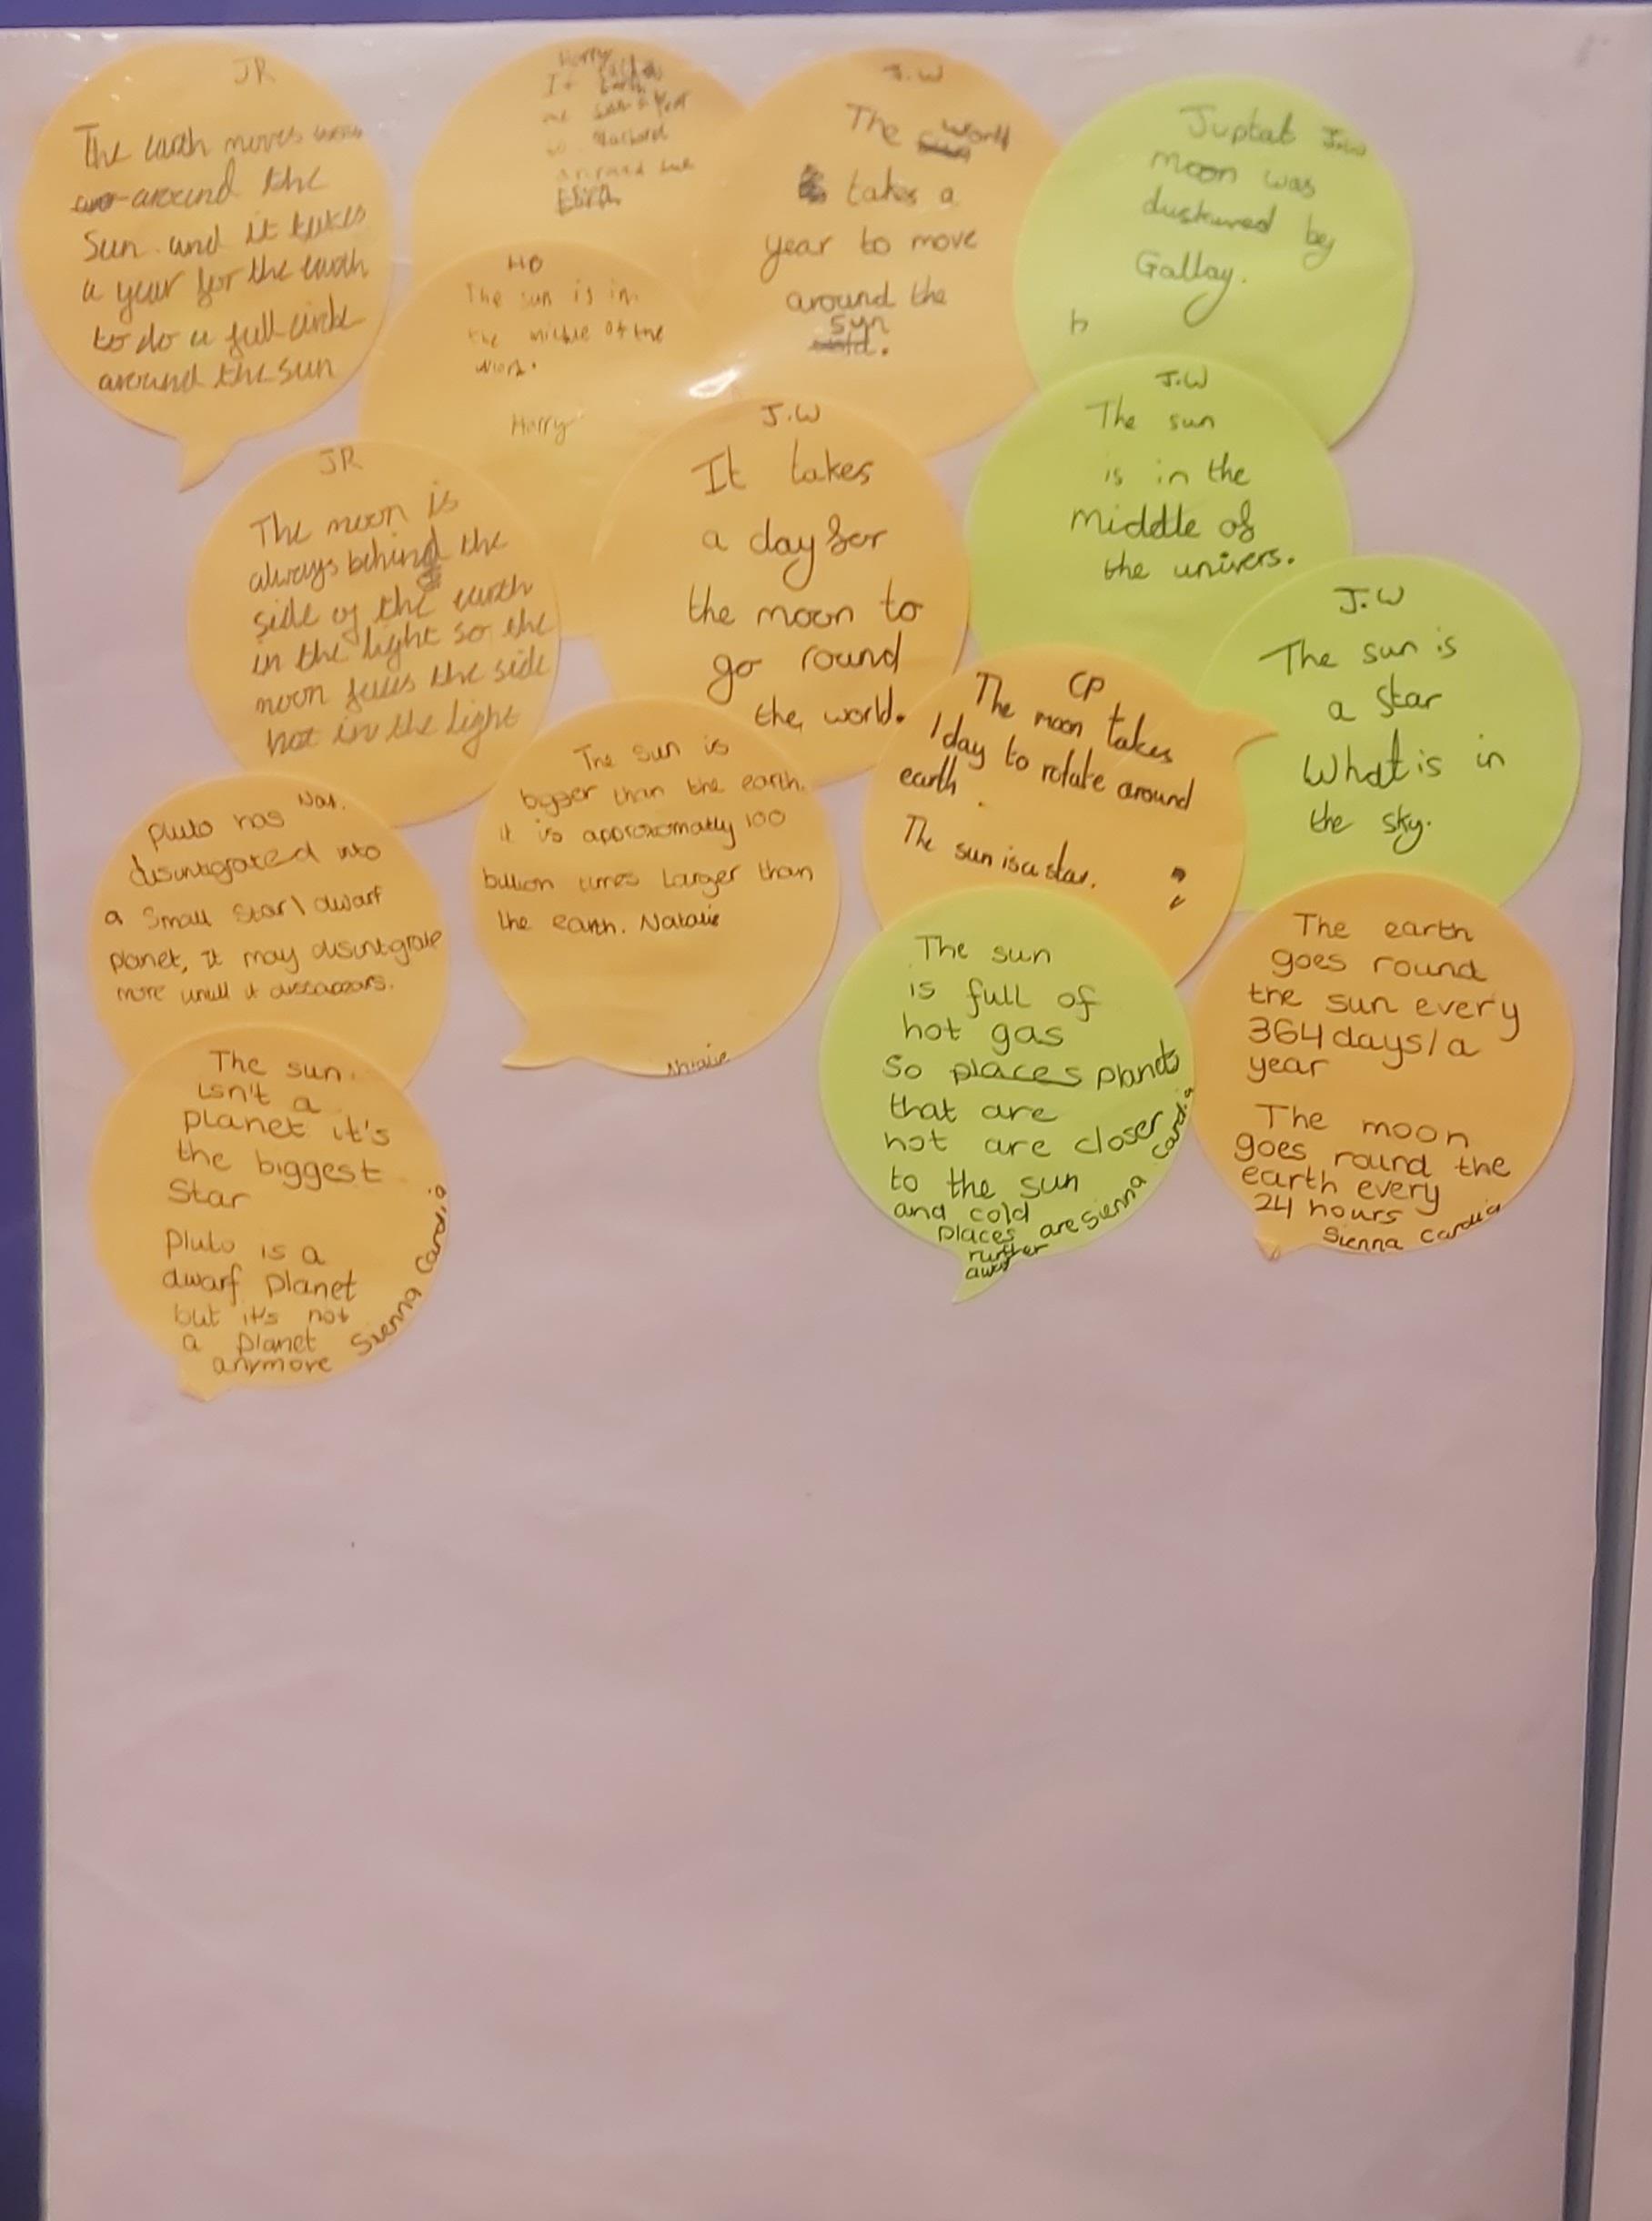 JR
The earth moves
around the
Sun and it takes
a year for the earth
to do a full circle
around the sun
Harry
It
around the
HO
The sun is in
the middle of the
Harry
J.W
The world
takes a
year to move
around the
syn
Juptab J.W
moon was
duskured by
Gallay.
b
J.W
The sun
is in the
middle of
the univers.
JR
The moon is
always behind the
side of the earth
in the light so the
moon faces the side
not in the light
J.W
It takes
a day for
the moon to
go round
the world.
J.W
The sun is
a star
What is in
the sky.
CP
The moon takes
1 day to rotate around
earth.
The sun is a star.
Nat.
pluto has
disintigrated into
a small star\dwarf
planet, it may disintigrate
more untill it
The sun is
bigger than the earth.
it is approxomatly 100
billion times larger than
the earth. Natalie
Natalie
The sun
is full of
hot gas
so places planets
that are
hot are closer
to the sun
and cold
places are
further
away
Sienna Cardia
The earth
goes round
the sun every
364 days/a
year
The moon
goes round the
earth every
24 hours
Sienna Cardia
The sun
isn't a
planet it's
the biggest
star
pluto is a
dwarf planet
but it's not
a planet
anymore
Sienna Cardia